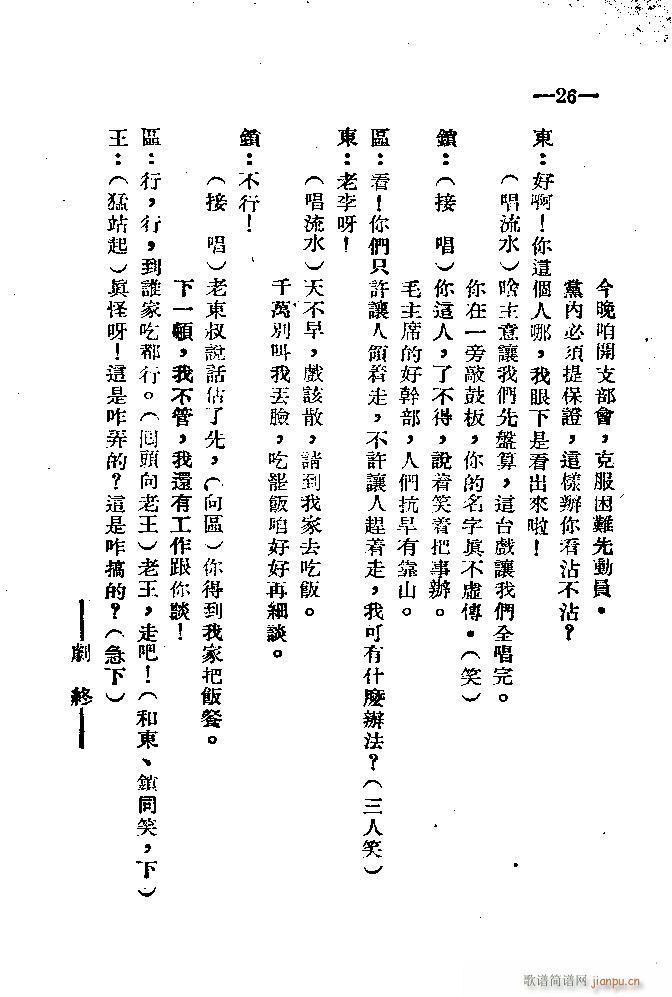 —26—
今晚咱開支部會，克服困難先動員。
黨內必須提保證，這樣辦你看沾不沾？
東：好啊！你這個人哪，我眼下是看出來啦！
（唱流水）啥主意讓我們先盤算，這台戲讓我們全唱完。
你在一旁敲鼓板，你的名字眞不虛傳。（笑）
鎖：（接　唱）你這人，了不得，說着笑着把事辦。
毛主席的好幹部，人們抗旱有靠山。
區：看！你們只許讓人領着走，不許讓人趕着走，我可有什麼辦法？（三人笑）
東：老李呀！
（唱流水）天不早，戲該散，請到我家去吃飯。
千萬別叫我丟臉，吃罷飯咱好好再細談。
鎖：不行！
（接　唱）老東叔說話佔了先，（向區）你得到我家把飯餐。
下一頓，我不管，我還有工作跟你談！
區：行，行，到誰家吃都行。（囘頭向老王）老王，走吧！（和東、鎖同笑，下）
王：（猛站起）眞怪呀！這是咋弄的？這是咋搞的？（急下）
——劇　終——
歌谱简谱网
jianpu.cn